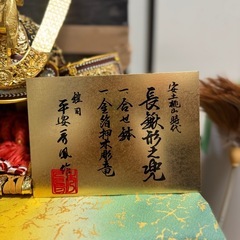 安土桃山時代
長鍬形之兜
一合せ鉢
一金箔押木彫竜
鎧司
平安秀鳳作